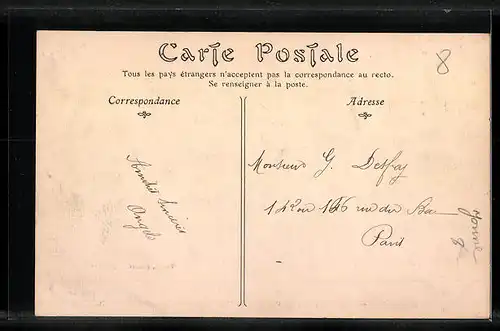 Carte Postale
Tous les pays étrangers n'acceptent pas la correspondance au recto.
Se renseigner à la poste.
Correspondance
Adresse
8
Amitiés Sincères
Angèle
Monsieur G.
rue du Bac
Paris